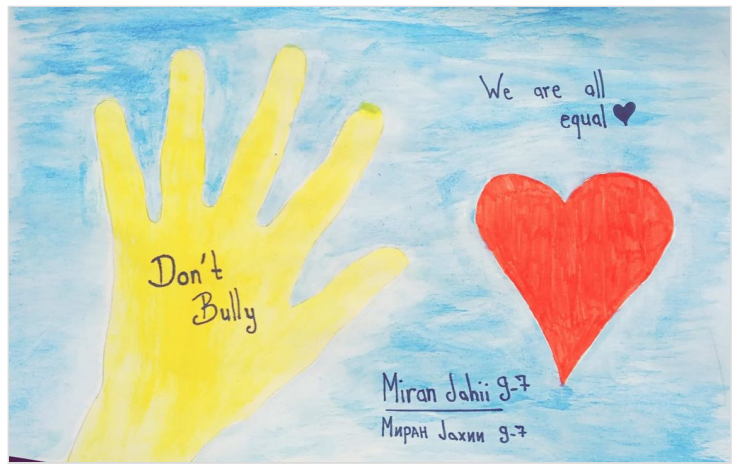 We are all
equal
Don't
Bully
Miran Jahii 9-7
Миран Јахии 9-7